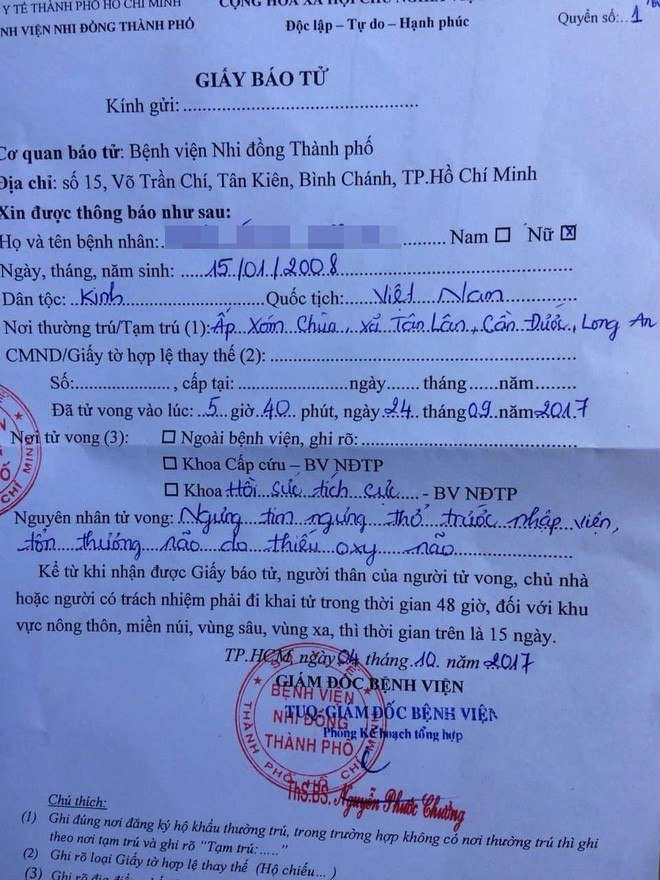 Y TẾ THÀNH PHỐ HỒ CHÍ MINH
NH VIỆN NHI ĐỒNG THÀNH PHỐ
Độc lập – Tự do – Hạnh phúc
Quyển số:..1
GIẤY BÁO TỬ
Kính gửi:
Cơ quan báo tử: Bệnh viện Nhi đồng Thành phố
Địa chỉ: số 15, Võ Trần Chí, Tân Kiên, Bình Chánh, TP.Hồ Chí Minh
Xin được thông báo như sau:
Họ và tên bệnh nhân: Nam ☐ Nữ ☒
Ngày, tháng, năm sinh: 15/01/2008
Dân tộc: Kinh Quốc tịch: Việt Nam
Nơi thường trú/Tạm trú (1): Ấp Xóm Chùa, xã Tân Lân, Cần Đước, Long An
CMND/Giấy tờ hợp lệ thay thế (2):
Số: , cấp tại: ngày tháng năm
Đã tử vong vào lúc: 5 giờ 40 phút, ngày 24 tháng 09 năm 2017
Nơi tử vong (3): ☐ Ngoài bệnh viện, ghi rõ:
☐ Khoa Cấp cứu – BV NĐTP
☐ Khoa Hồi sức tích cực - BV NĐTP
Nguyên nhân tử vong: Ngưng tim ngưng thở trước nhập viện,
tổn thương não do thiếu oxy não
Kể từ khi nhận được Giấy báo tử, người thân của người tử vong, chủ nhà
hoặc người có trách nhiệm phải đi khai tử trong thời gian 48 giờ, đối với khu
vực nông thôn, miền núi, vùng sâu, vùng xa, thì thời gian trên là 15 ngày.
TP.HCM, ngày 04 tháng 10 năm 2017
GIÁM ĐỐC BỆNH VIỆN
TUQ.GIÁM ĐỐC BỆNH VIỆN
Phòng Kế hoạch tổng hợp
BỆNH VIỆN
NHI ĐỒNG
THÀNH PHỐ
THÀNH PHỐ HỒ CHÍ MINH
ThS.BS. Nguyễn Phước Chưởng
Chú thích:
(1) Ghi đúng nơi đăng ký hộ khẩu thường trú, trong trường hợp không có nơi thường trú thì ghi
theo nơi tạm trú và ghi rõ "Tạm trú:....."
(2) Ghi rõ loại Giấy tờ hợp lệ thay thế (Hộ chiếu... )
(3) Ghi rõ